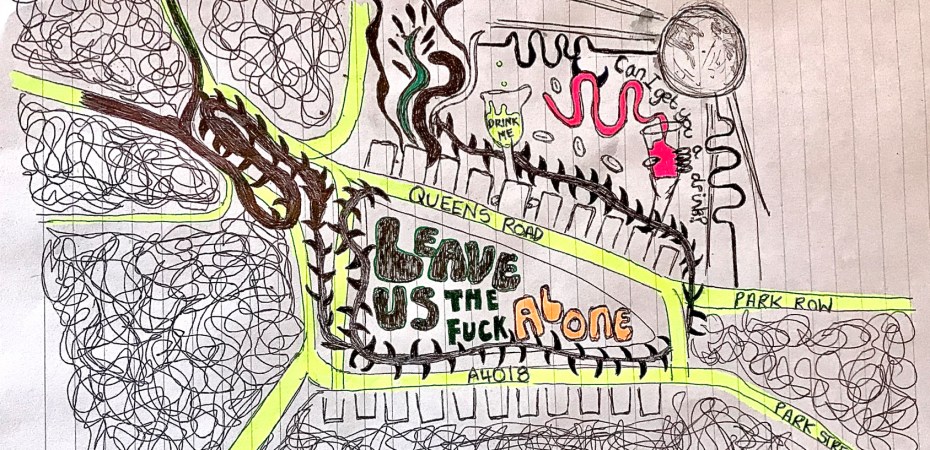 Can I get
a drink?
DRINK
ME
QUEENS ROAD
LEAVE
US THE
FUCK ALONE
PARK ROW
A4018
PARK STRE